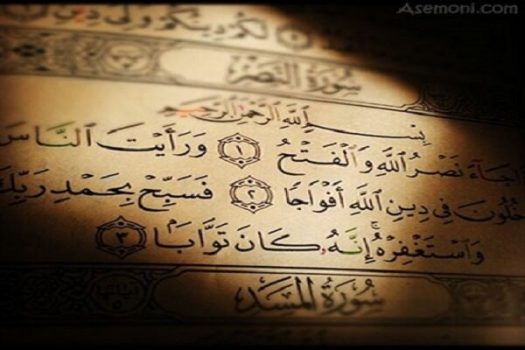 Asemoni.com
لَكُمْ دِينُكُمْ وَلِيَ دِينِ
سُورَةُ النَّصْرِ
بِسْمِ اللَّهِ الرَّحْمَٰنِ الرَّحِيمِ
جَاءَ نَصْرُ اللَّهِ وَالْفَتْحُ ١ وَرَأَيْتَ النَّاسَ
خُلُونَ فِي دِينِ اللَّهِ أَفْوَاجًا ٢ فَسَبِّحْ بِحَمْدِ رَبِّكَ
وَاسْتَغْفِرْهُ ۚ إِنَّهُ كَانَ تَوَّابًا ٣
سُورَةُ الْمَسَدِ